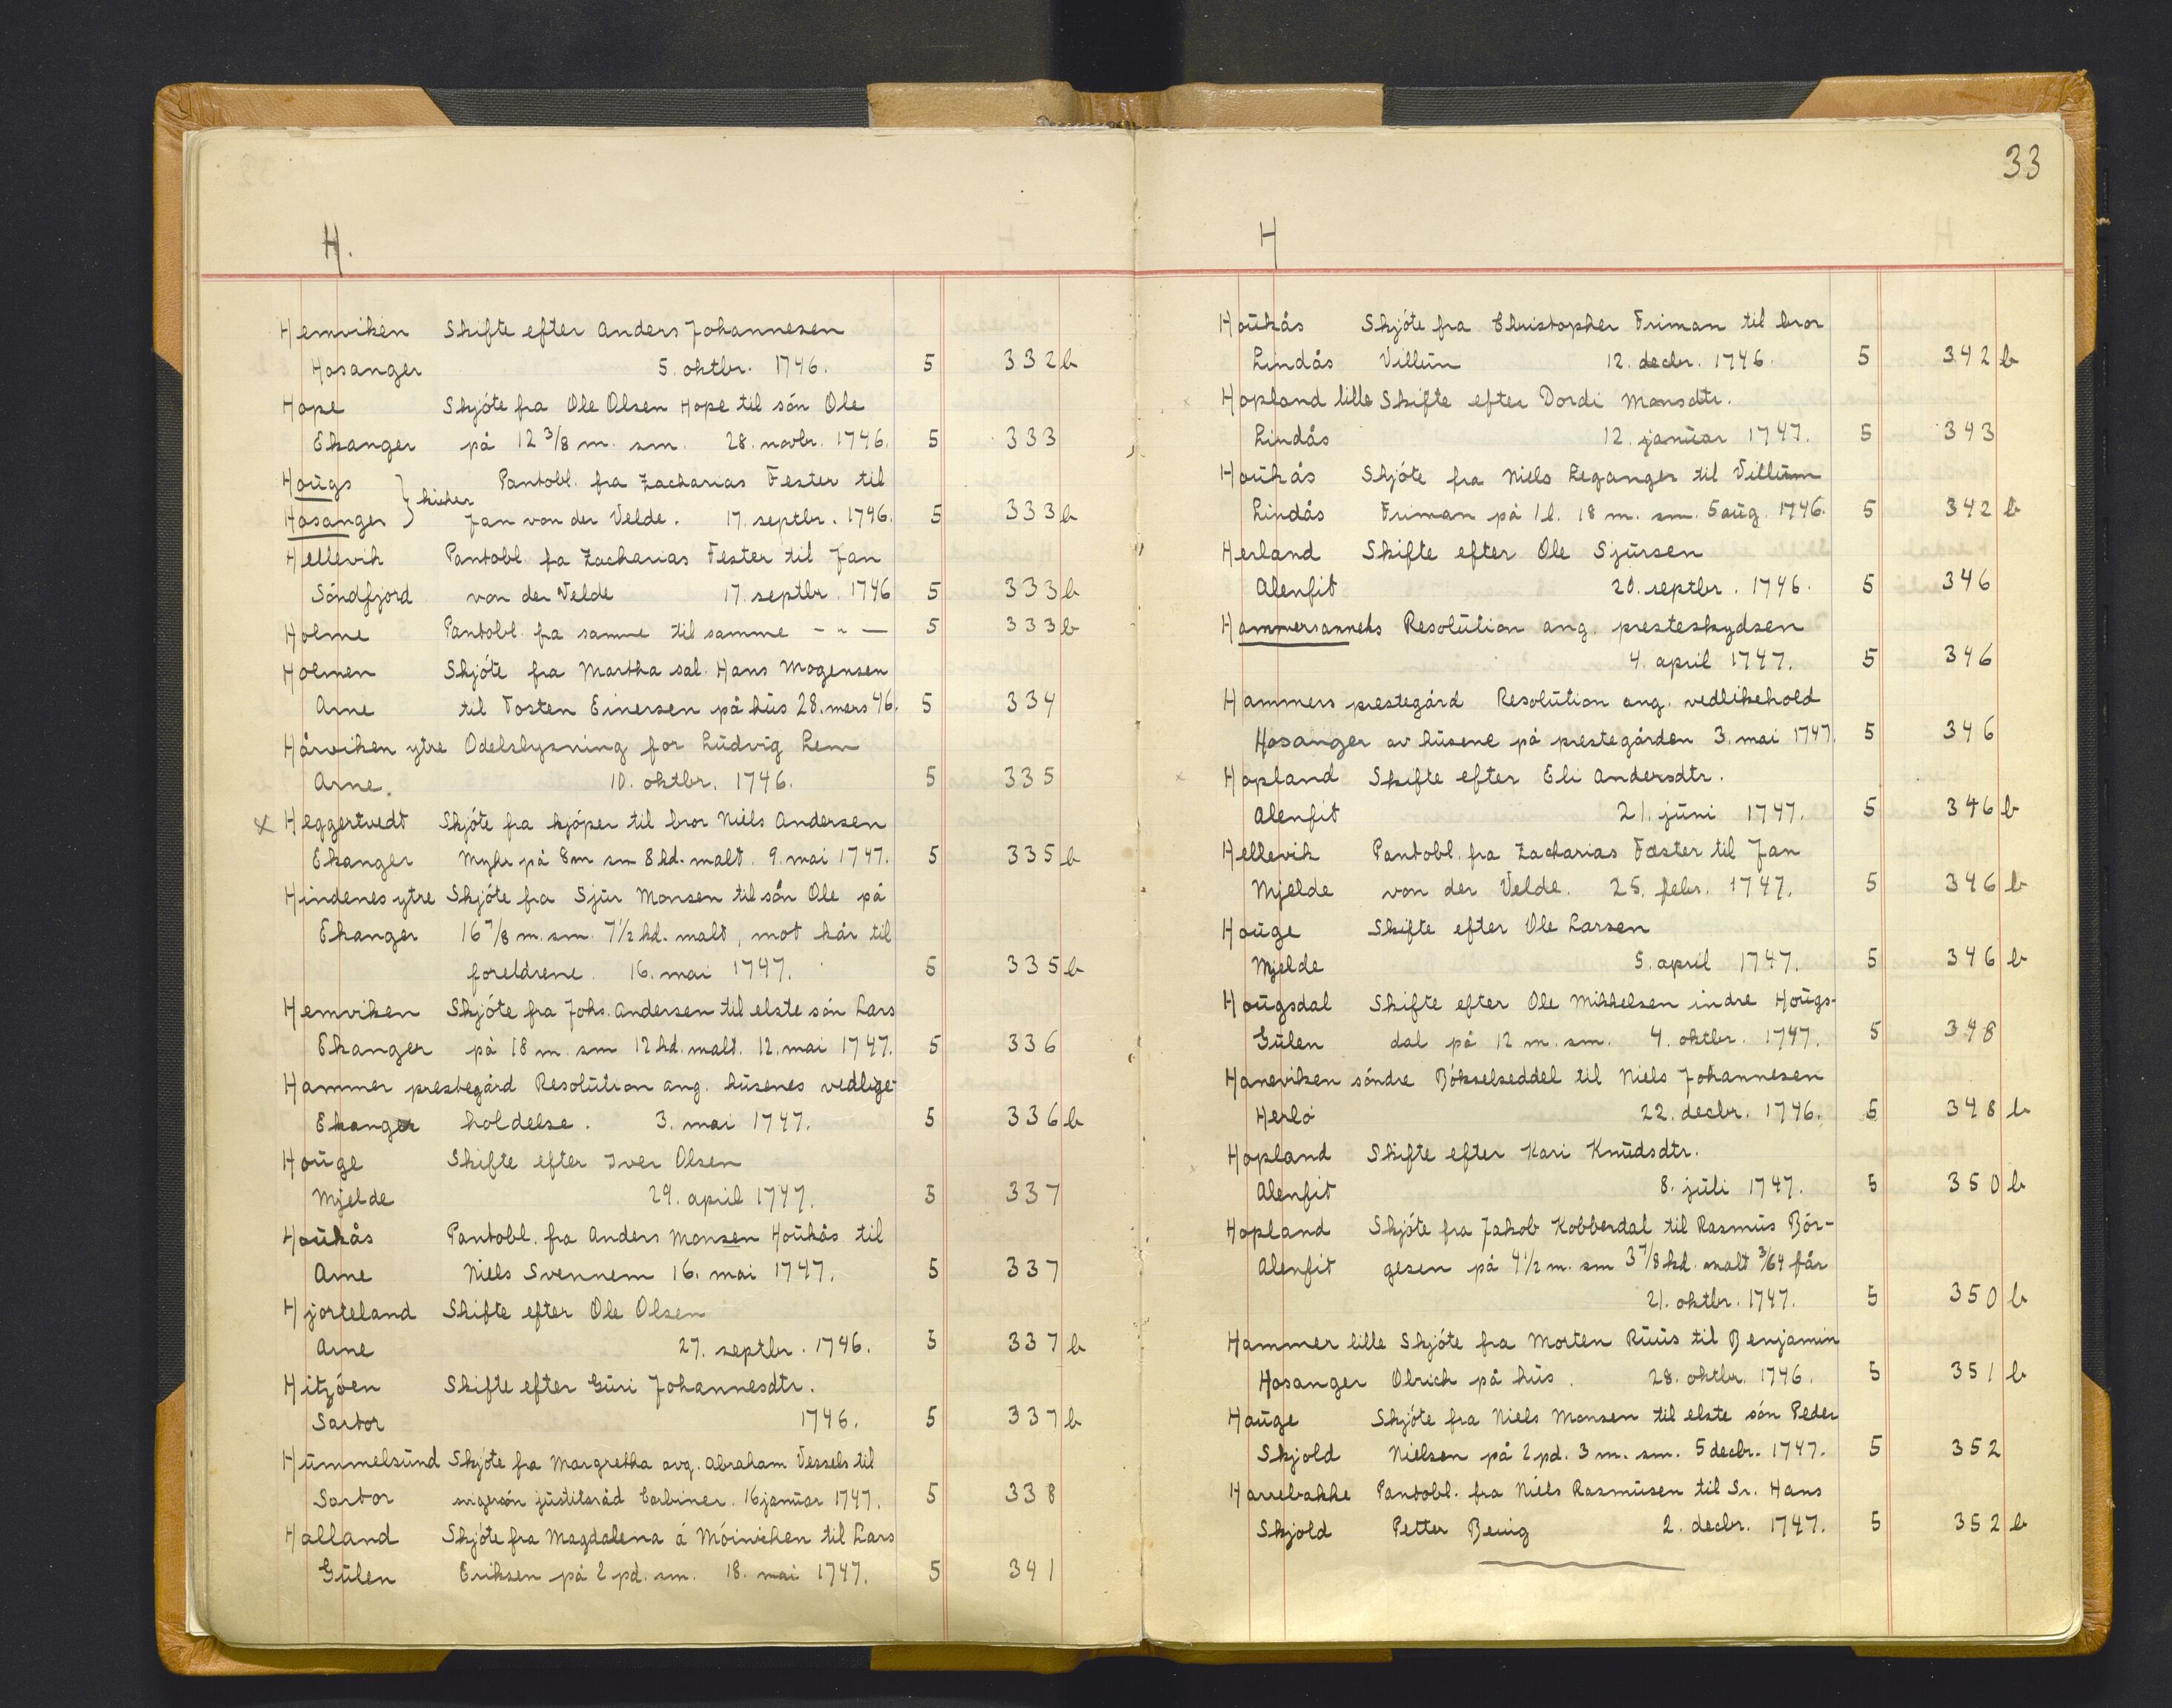 H.
Hemviken Skifte efter Anders Johannesen
Hosanger 5. oktbr. 1746. 5 332 b
Hope Skjóte fra Ole Olsen Hope til són Ole
Ekanger på 12 3/8 m. sm. 28. novbr. 1746. 5 333
Hoŭgs } kirker Pantobl. fra Zacharias Fester til
Hosanger Jan von der Velde. 17. septbr. 1746. 5 333 b
Hellevik Pantobl. fa Zacharias Fester til Jan
Sóndfjord von der Velde 17. septbr. 1746 5 333 b
Holme Pantobl. fra samme til samme - " — 5 333 b
Holmen Skjóte fra Martha sal. Hans Mogensen
Arne til Tosten Einersen på hŭs 28. mars 46. 5 334
Hårviken ytre Odelslysning for Lŭdvig Lem
Arne. 10. oktbr. 1746. 5 335
x Heggertvedt Skjóte fra kjóper til bror Niels Andersen
Ekanger Myhr på 8 m sm 8 kd. malt. 9. mai 1747. 5 335 b
Hindenes ytre Skjóte fra Sjŭr Monsen til són Ole på
Ekanger 16 7/8 m. sm. 7 1/2 kd. malt, mot kår til
foreldrene. 16. mai 1747. 5 335 b
Hemviken Skjóte fra Johs. Andersen til elste són Lars
Ekanger på 18 m. sm 12 kd. malt. 12. mai 1747. 5 336
Hammer prestegård Resolŭtion ang. hŭsenes vedlige-
Ekanger holdelse. 3. mai 1747. 5 336 b
Hoŭge Skifte efter Iver Olsen
Mjelde 29. april 1747. 5 337
Hoŭkås Pantobl. fra Anders Monsen Hoŭkås til
Arne Niels Svennem 16. mai 1747. 5 337
Hjorteland Skifte efter Ole Olsen
Arne 27. septbr. 1746. 5 337 b
Hitzóen Skifte efter Gŭri Johannesdtr.
Sartor 1746. 5 337 b
Hŭmmelsŭnd Skjóte fra Margretha avg. Abraham Vessels til
Sartor svigersón jŭstitsråd Carbiner. 16 janŭar 1747. 5 338
Halland Skjóte fra Magdalena á Móinichen til Lars
Gŭlen Eriksen på 2 pd. sm. 18. mai 1747. 5 341
33
H
Hoŭkås Skjóte fra Christopher Friman til bror
Lindås Villŭm 12. decbr. 1746. 5 342 b
Hopland lille Skifte efter Dordi Monsdtr.
Lindås 12. janŭar 1747. 5 343
Hoŭkås Skjóte fra Niels Leganger til Villŭm
Lindås Friman på 1 l. 18 m. sm. 5 aŭg. 1746. 5 342 b
Herland Skifte efter Ole Sjŭrsen
Alenfit 20. septbr. 1746. 5 346
Hammersanneks Resolŭtion ang. presteskydsen
4. april 1747. 5 346
Hammers prestegård Resolŭtion ang. vedlikehold
Hosanger av hŭsene på prestegården 3. mai 1747. 5 346
x Hopland Skifte efter Eli Andersdtr.
Alenfit 21. jŭni 1747. 5 346 b
Hellevik Pantobl. fra Zacharias Fæster til Jan
Mjelde von der Velde. 25. febr. 1747. 5 346 b
Hoŭge Skifte efter Ole Larsen
Mjelde 5. april 1747. 5 346 b
Hoŭgsdal Skifte efter Ole Mikkelsen indre Hoŭgs-
Gŭlen dal på 12 m. sm. 4. oktbr. 1747. 5 348
Haneviken sóndre Bókselseddel til Niels Johannesen
Herló 22. decbr. 1746. 5 348 b
Hopland Skifte efter Kari Knŭdsdtr.
Alenfit 8. jŭli 1747. 5 350 b
Hopland Skjóte fra Jakob Kobberdal til Rasmŭs Bór-
Alenfit gesen på 4 1/2 m. sm 3 7/8 kd. malt 3/64 får
21. oktbr. 1747. 5 350 b
Hammer lille Skjóte fra Morten Rŭŭs til Benjamin
Hosanger Olrich på hŭs. 28. oktbr. 1746. 5 351 b
Haŭge Skjóte fra Niels Monsen til elste són Peder
Skjold Nielsen på 2 pd. 3 m. sm. 5 decbr. 1747. 5 352
Harrebakke Pantobl. fra Niels Rasmŭsen til Sr. Hans
Skjold Petter Beŭig 2. decbr. 1747. 5 352 b